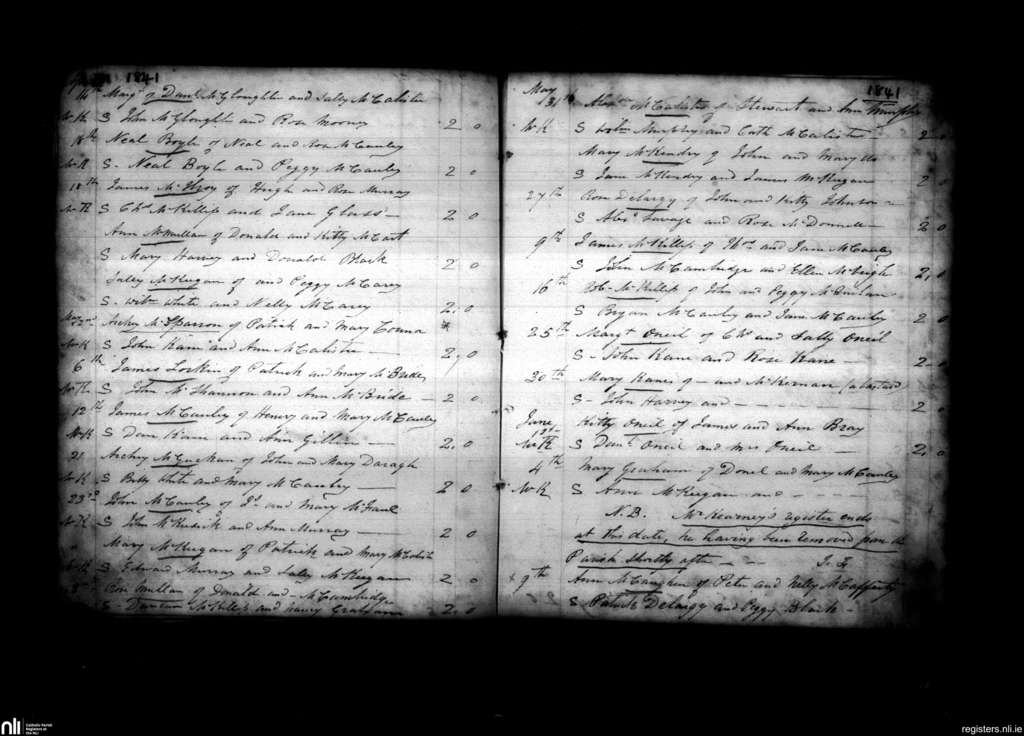 1841
14th Margt of Danl McGloughlin and Sally McCalister
WK S John McGloughlin and Rose Mooney 2 0
18th Neal Boyle of Neal and Rose McCauley
WK S. Neal Boyle and Peggy McCauley 2 0
18th James McIlroy of Hugh and Rose Murray
WK S Chs McKillip and Jane Glass 2 0
Ann McMullan of Donald and Kitty McCart
S Mary Harvey and Donald Black 2 0
Sally McKeegan of and Peggy McCarey
S. Willm White and Nelly McCarey 2. 0
Archy McSparron of Patrick and Mary
WK S John Kane and Ann McCalister 2, 0
6th James Lorkin of Patrick and Mary McBride,
WK S John McShannon and Ann McBride 2 0
12th James McCauley of Henry and Mary McCauley
WK S Danl Kane and Ann Gillin 2. 0
21 Archy McGuckan of John and Mary Daragh
WK S Patk White and Mary McCauley 2 0
23rd John McCauley of Js. and Mary McFaul
WK S John McKusick and Ann Murray 2 0
Mary McKeegan of Patrick and Mary
WK S Edward Murray and Sally McKeegan 2 0
5th Rose Mullan of Donald and McCambridge
S. Duncan McKillip and Nancy 2. 0
1841
May
31st Alexr McCalister of Stewart and Ann Murphy
WK S Willm Murphy and Cath McCalister 2 0
Mary McKendry of John and Mary do
S Jane McKendry and James McKeegan 2 0
27th Rose Delargy of John and Kitty Johnson
S Alexr Savage and Rose McDonnell 2 0
9th James McKillip of Thos and Jane McCauley
S John McCambridge and Ellen McVeigh 2, 0
16th Rob. McKillip of John and Peggy
S Bryan McCauley and Jane McCauley 2 0
25th Margt Oneil of Chs and Sally Oneil
S. John Kane and Rose Kane 2 0
30th Mary Kane of – and McKernan
S. John Harvey and – 2 0
June
1st Kitty Oneil of James and Ann Bray
WK S Danl Oneil and Mrs Oneil 2. 0
4th Mary Graham of Donel and Mary McCauley
WK S Ann McKeegan and –
N.B. McKearney's register ends
at this date, he having been removed from the
Parish shortly after – – J. F.
x 9th Ann McCaughen of Peter and Nelly McCafferty
S Patrick Delargy and Peggy Black –
nli Catholic Parish Registers at the NLI
registers.nli.ie